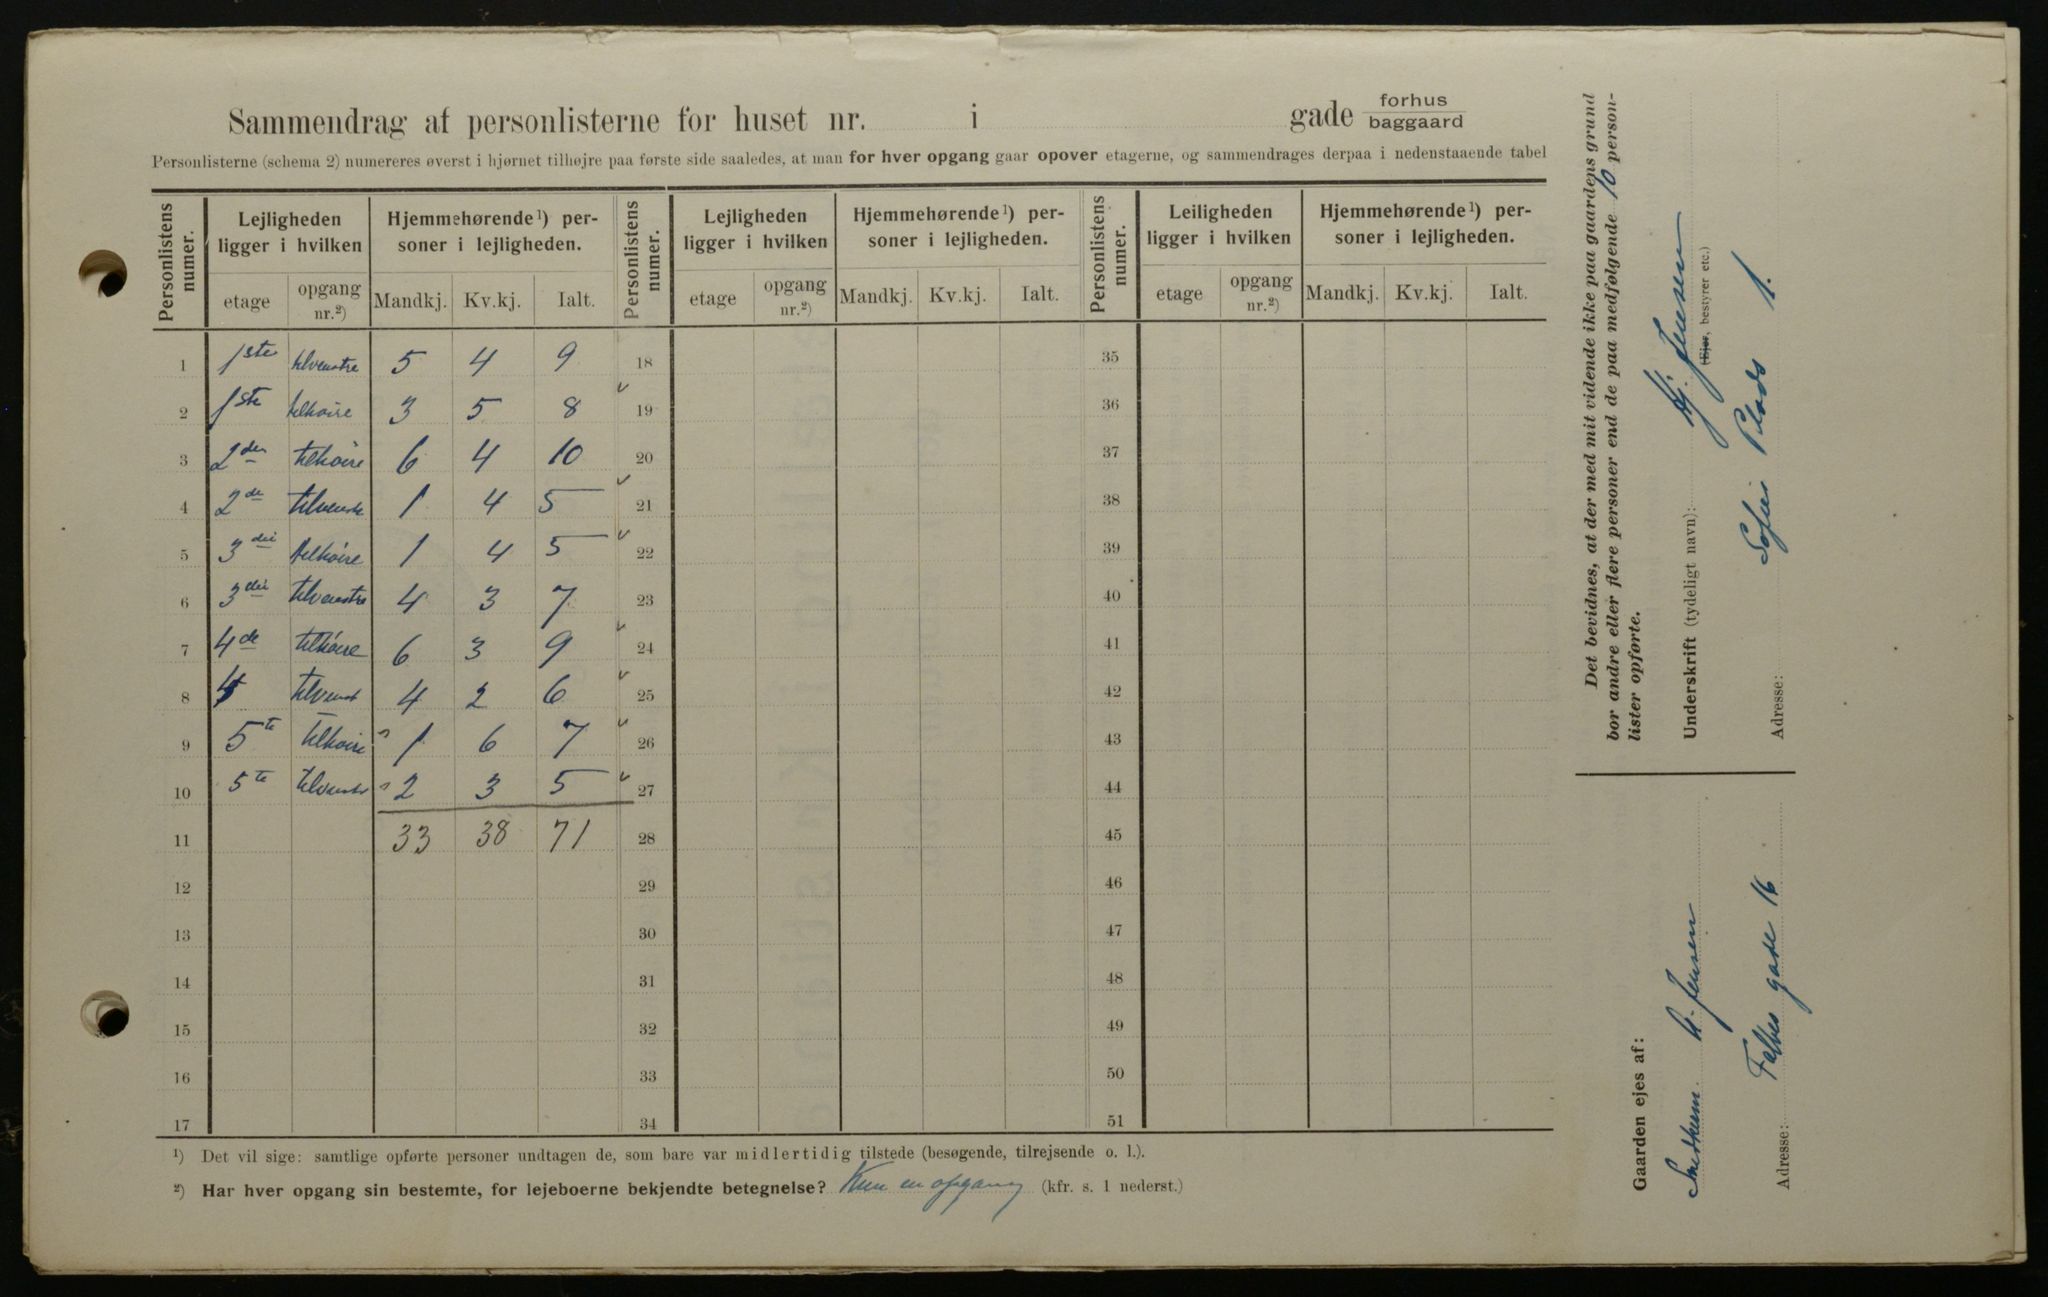 Sammendrag af personlisterne for huset nr. i gade forhus baggaard
Personlisterne (schema 2) numereres øverst i hjørnet tilhøjre paa første side saaledes, at man for hver opgang gaar opover etagerne, og sammendrages derpaa i nedenstaaende tabel
Personlistens numer. Lejligheden ligger i hvilken Hjemmehørende¹) personer i lejligheden. Personlistens numer. Lejligheden ligger i hvilken Hjemmehørende¹) personer i lejligheden. Personlistens numer. Leiligheden ligger i hvilken Hjemmehørende¹) personer i lejligheden.
etage opgang nr.²) Mandkj. Kv.kj. Ialt. etage opgang nr.²) Mandkj. Kv.kj. Ialt. etage opgang nr.²) Mandkj. Kv.kj. Ialt.
1 1ste tilvenstre 5 4 9 18 35
2 1ste tilhøire 3 5 8 19 36
3 2den tilhøire 6 4 10 20 37
4 2de tilvenstre 1 4 5 21 38
5 3die tilhøire 1 4 5 22 39
6 3die tilvenstre 4 3 7 23 40
7 4de tilhøire 6 3 9 24 41
8 4 tilvenst 4 2 6 25 42
9 5te tilhøire 1 6 7 26 43
10 5te tilvenstr 2 3 5 27 44
11 33 38 71 28 45
12 29 46
13 30 47
14 31 48
15 32 49
16 33 50
17 34 51
¹) Det vil sige: samtlige opførte personer undtagen de, som bare var midlertidig tilstede (besøgende, tilrejsende o. l.).
²) Har hver opgang sin bestemte, for lejeboerne bekjendte betegnelse? Kun en opgang (kfr. s. 1 nederst.)
Det bevidnes, at der med mit vidende ikke paa gaardens grund
bor andre eller flere personer end de paa medfølgende 10 person-
lister opførte.
Underskrift (tydeligt navn): Hj. Jensen
(Ejer, bestyrer etc.)
Adresse: Sofies Plads 1.
Gaarden ejes af:
A. Jensen
Adresse: Falbes gade 16